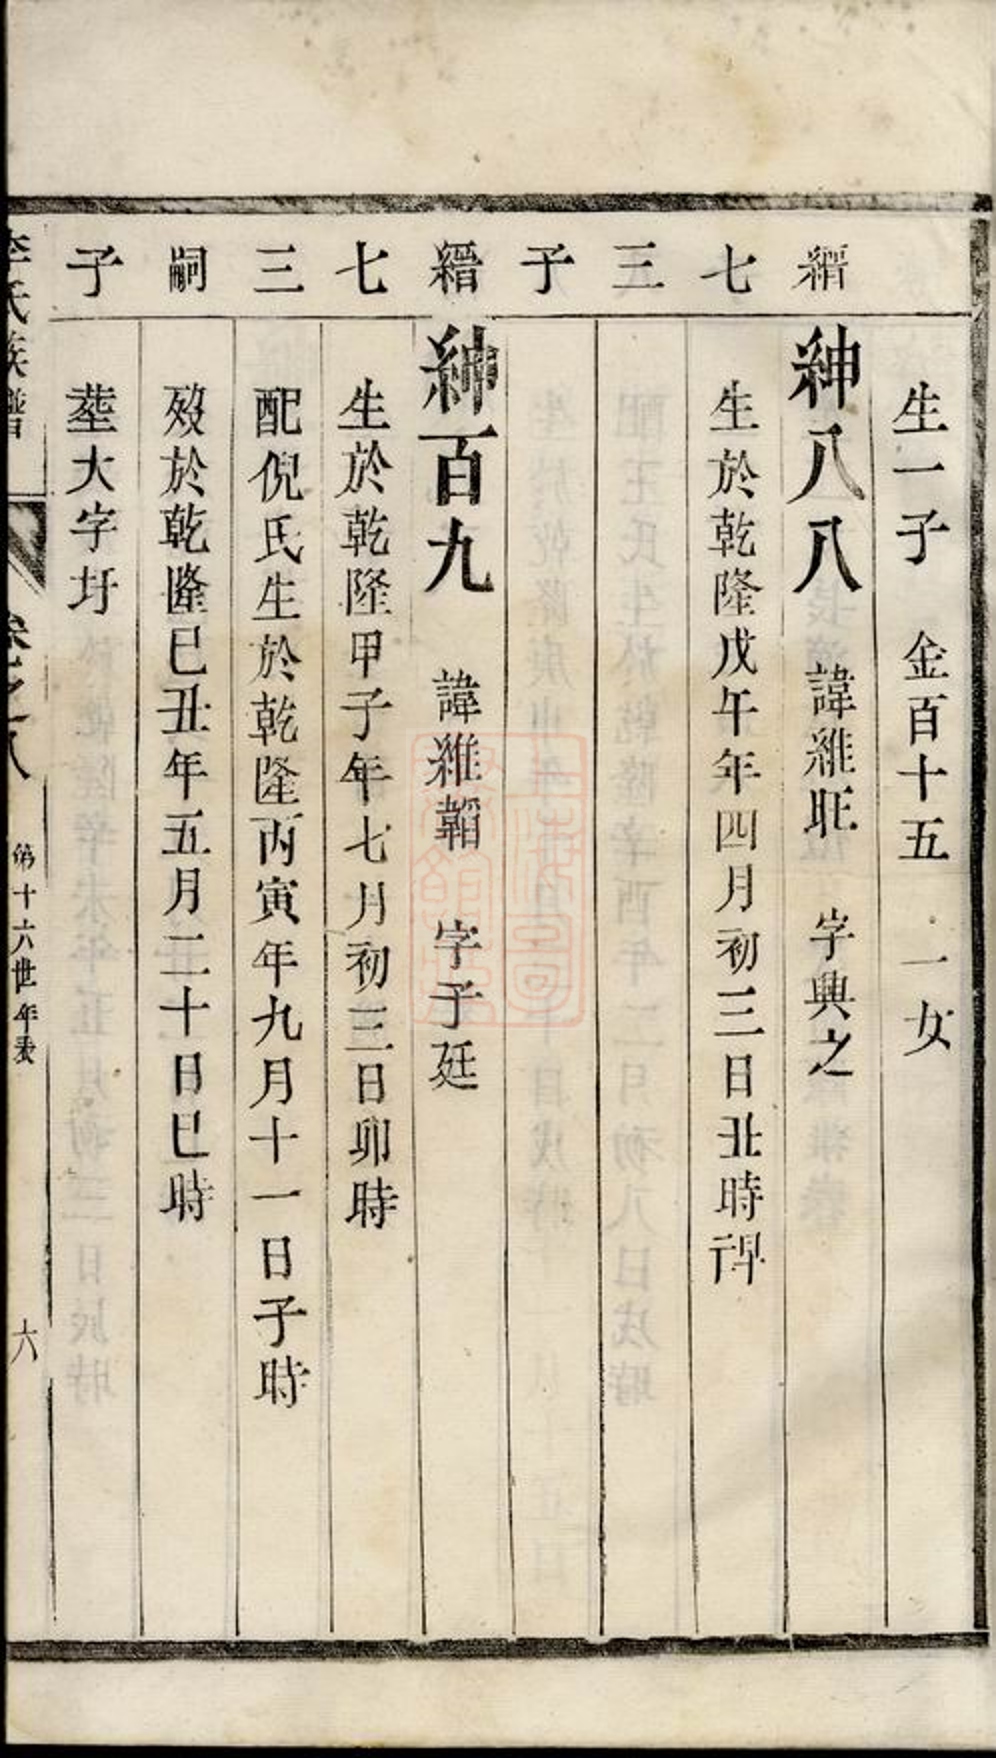 生一子 金百十五 一女
縉 紳八八 諱維旺 字興之
七 生於乾隆戊午年四月初三日丑時
三
子
縉 紳百九 諱維韜 字子廷
七 生於乾隆甲子年七月初三日卯時
三 配倪氏生於乾隆丙寅年九月十一日子時
嗣 歿於乾隆巳丑年五月二十日巳時
子 塟大字圩
李氏族譜 卷之八 第十六世年表 六